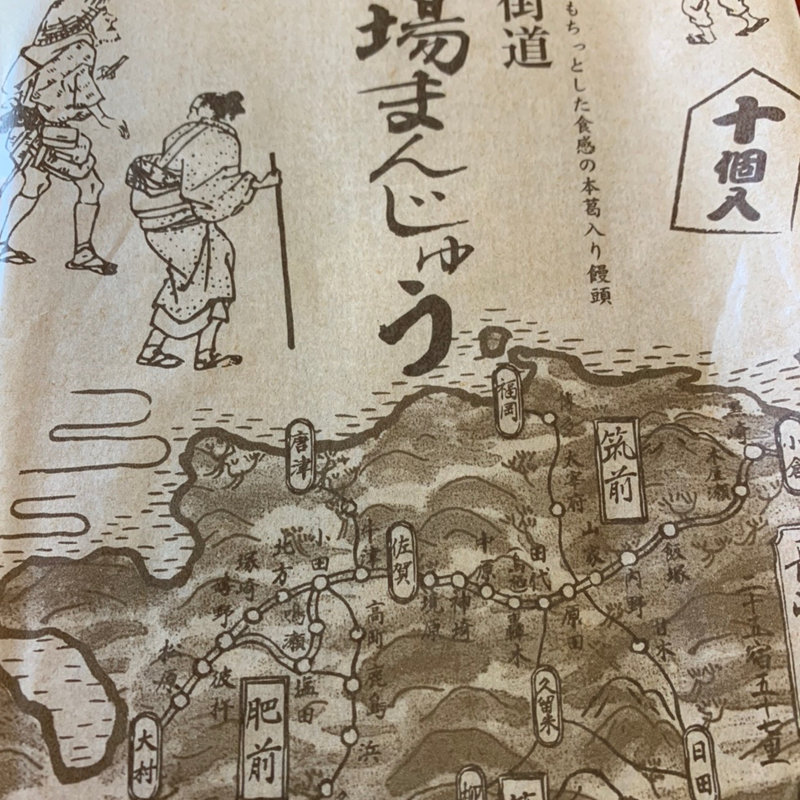 街道
場まんじゅう
もちっとした食感の本葛入り饅頭
十個入
福岡
筑前
唐津
佐賀
太宰府
山家
木屋瀬
飯塚
内野
二十五宿五十七里
牛津
小田
北方
塚崎
嬉野
彼杵
松原
大村
鳴瀬
塩田
肥前
高町
鹿島
浜
境原
神埼
中原
轟木
田代
原田
甘木
久留米
日田